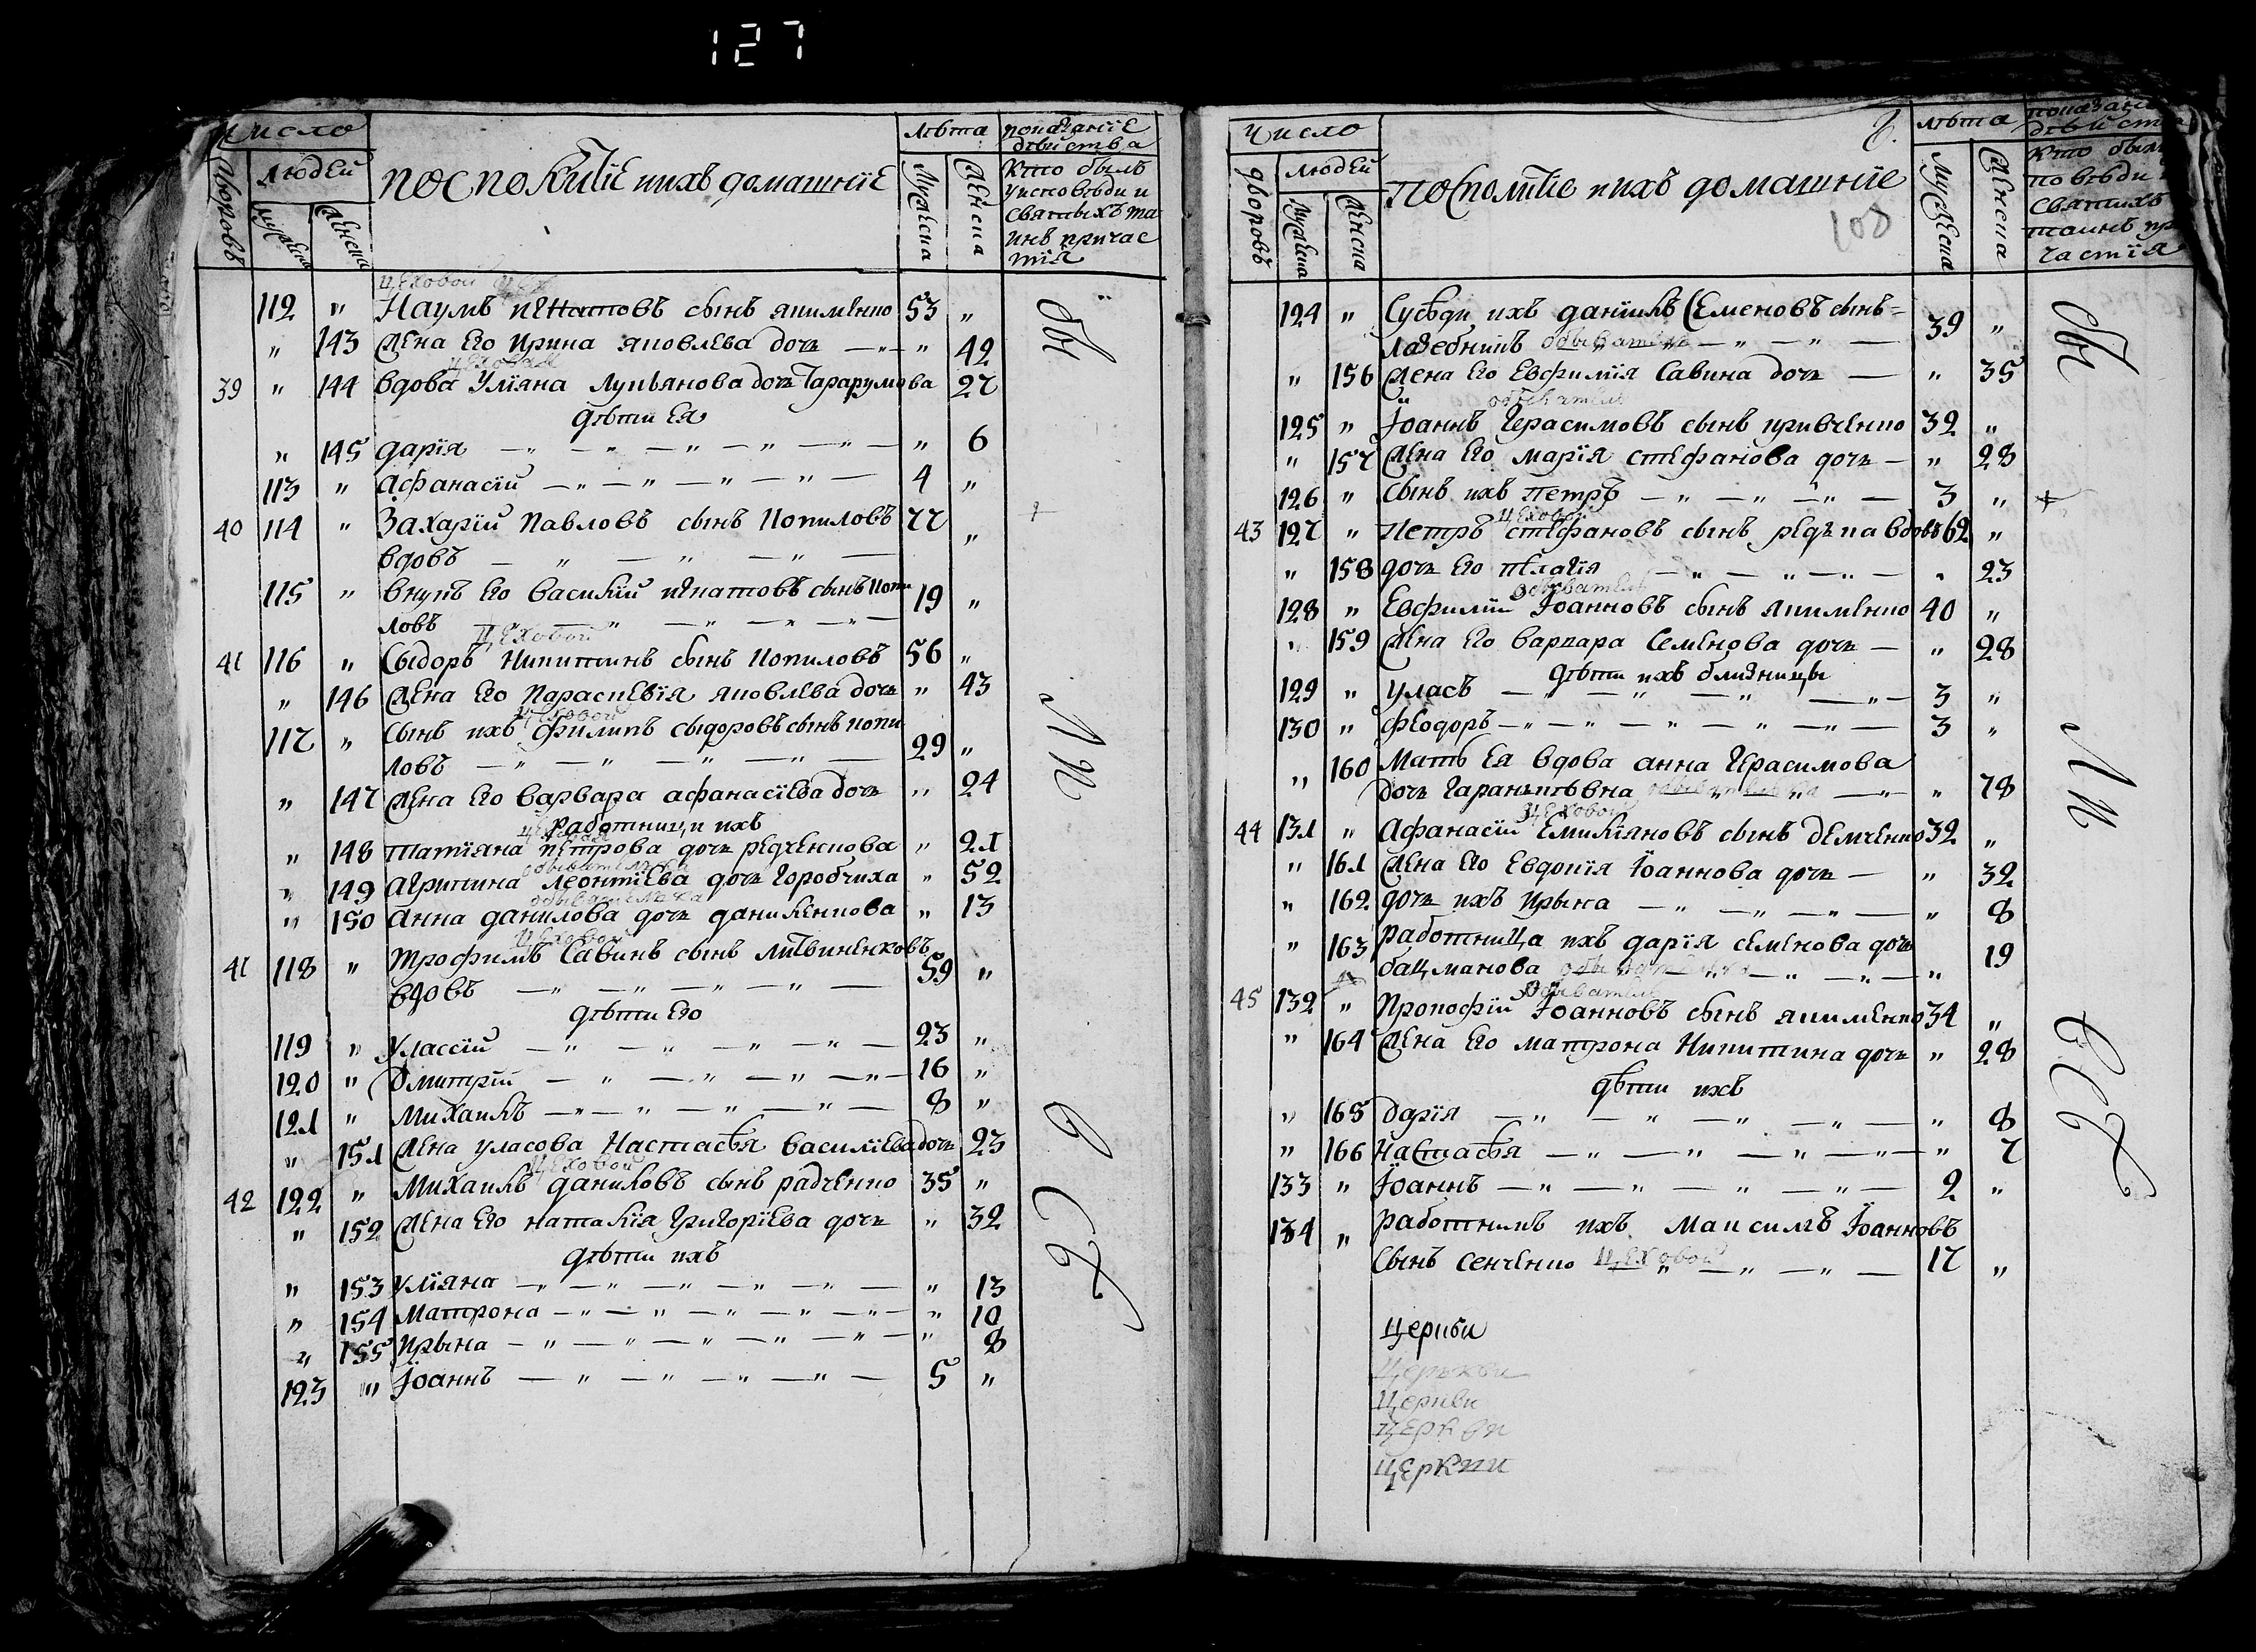 127
Число
Лѣта
показаніе дѣйства
Дворовъ
Людей
посполитіе и ихъ домашніе
Мужеска
Женска
Кто былъ
у исповѣди и
святыхъ та
инъ причас
тія
Цеховой
112 " Наумъ сынъ Якименко 53 "
" 143 Жена его Ирина Яковлева дочь " 42
39 " 144 вдова Уліяна Лукьянова дочь Тарарумова 27
дѣти ея
" 145 Дарія " 6
113 " Афанасій 4 "
40 114 " Захарій Павловъ сынъ Копиловъ 77 "
вдовъ
115 " внукъ его Василій Игнатовъ сынъ Копи 19 "
ловъ
Цеховой
41 116 " Сыдоръ Никитинъ сынъ Копиловъ 56 "
" 146 Жена его Параскевія Яковлева дочь " 43
Цеховой
117 " Сынъ ихъ Филипъ Сыдоровъ сынъ Копи
ловъ 29 "
" 147 Жена его Варвара Афанасіева дочь " 24
работници ихъ
" 148 Татіяна Петрова дочь Редченкова " 21
" 149 Агрипина Леонтіева дочь Горобчиха " 52
" 150 Анна Данилова дочь Даниленкова " 13
Цеховой
41 118 " Трофимъ Савинъ сынъ Литвиненковъ
вдовъ 59 "
дѣти его
119 " Улассій 23 "
120 " Дмитрій 16 "
121 " Михаилъ 8 "
" 151 Жена Уласова Настасья Василіева дочь 23
Цеховой
42 122 " Михаилъ Даниловъ сынъ Радченко 35 "
" 152 Жена его Наталія Григоріева дочь " 32
дѣти ихъ
" 153 Уліяна " 13
" 154 Матрона " 10
" 155 Ирына " 8
123 " Іоаннъ 5 "
бы
ли
всѣ
Число
Лѣта
дворовъ
Людей
Мужеска
Женска
посполитіе и ихъ домашніе
108
Мужеска
Женска
Кто былъ
повѣди
святихъ
таинъ при
частія
124 " Сусѣди ихъ Даніилъ Семеновъ сынъ
Лазебникъ обыватель 39 "
" 156 Жена его Евфимія Савина дочь " 35
обыватель
125 " Іоаннъ Герасимовъ сынъ Кривченко 32 "
" 157 Жена его Марія Стефанова дочь " 28
126 " Сынъ ихъ Петръ 3 "
Цеховой
43 127 " Петръ Стефановъ сынъ Редька вдовъ 62 "
" 158 дочь его Пелагія " 23
обыватель
128 " Евфимій Іоанновъ сынъ Якименко 40 "
" 159 Жена его Варвара Семенова дочь " 28
дѣти ихъ близницы
129 " Уласъ 3 "
130 " Феодоръ 3 "
" 160 Мать ея вдова Анна Герасимова
" 78
Цеховой
44 131 " Афанасій Емиліяновъ сынъ Демченко 32 "
" 161 Жена его Евдокія Іоаннова дочь " 32
" 162 дочь ихъ Ирына " 8
" 163 работница ихъ Дарія Семенова дочь
Бацманова " 19
обыватель
45 132 " Прокофій Іоанновъ сынъ Якименко 34 "
" 164 Жена его Матрона Никитина дочь " 28
дѣти ихъ
" 165 Дарія " 8
" 166 Настасья " 7
133 " Іоаннъ 2 "
134 " работникъ ихъ Максимъ Іоанновъ
Сынъ Сенченко Цеховой 17 "
Церкви
Церкви
Церкви
Церкви
бы
ли
всѣ